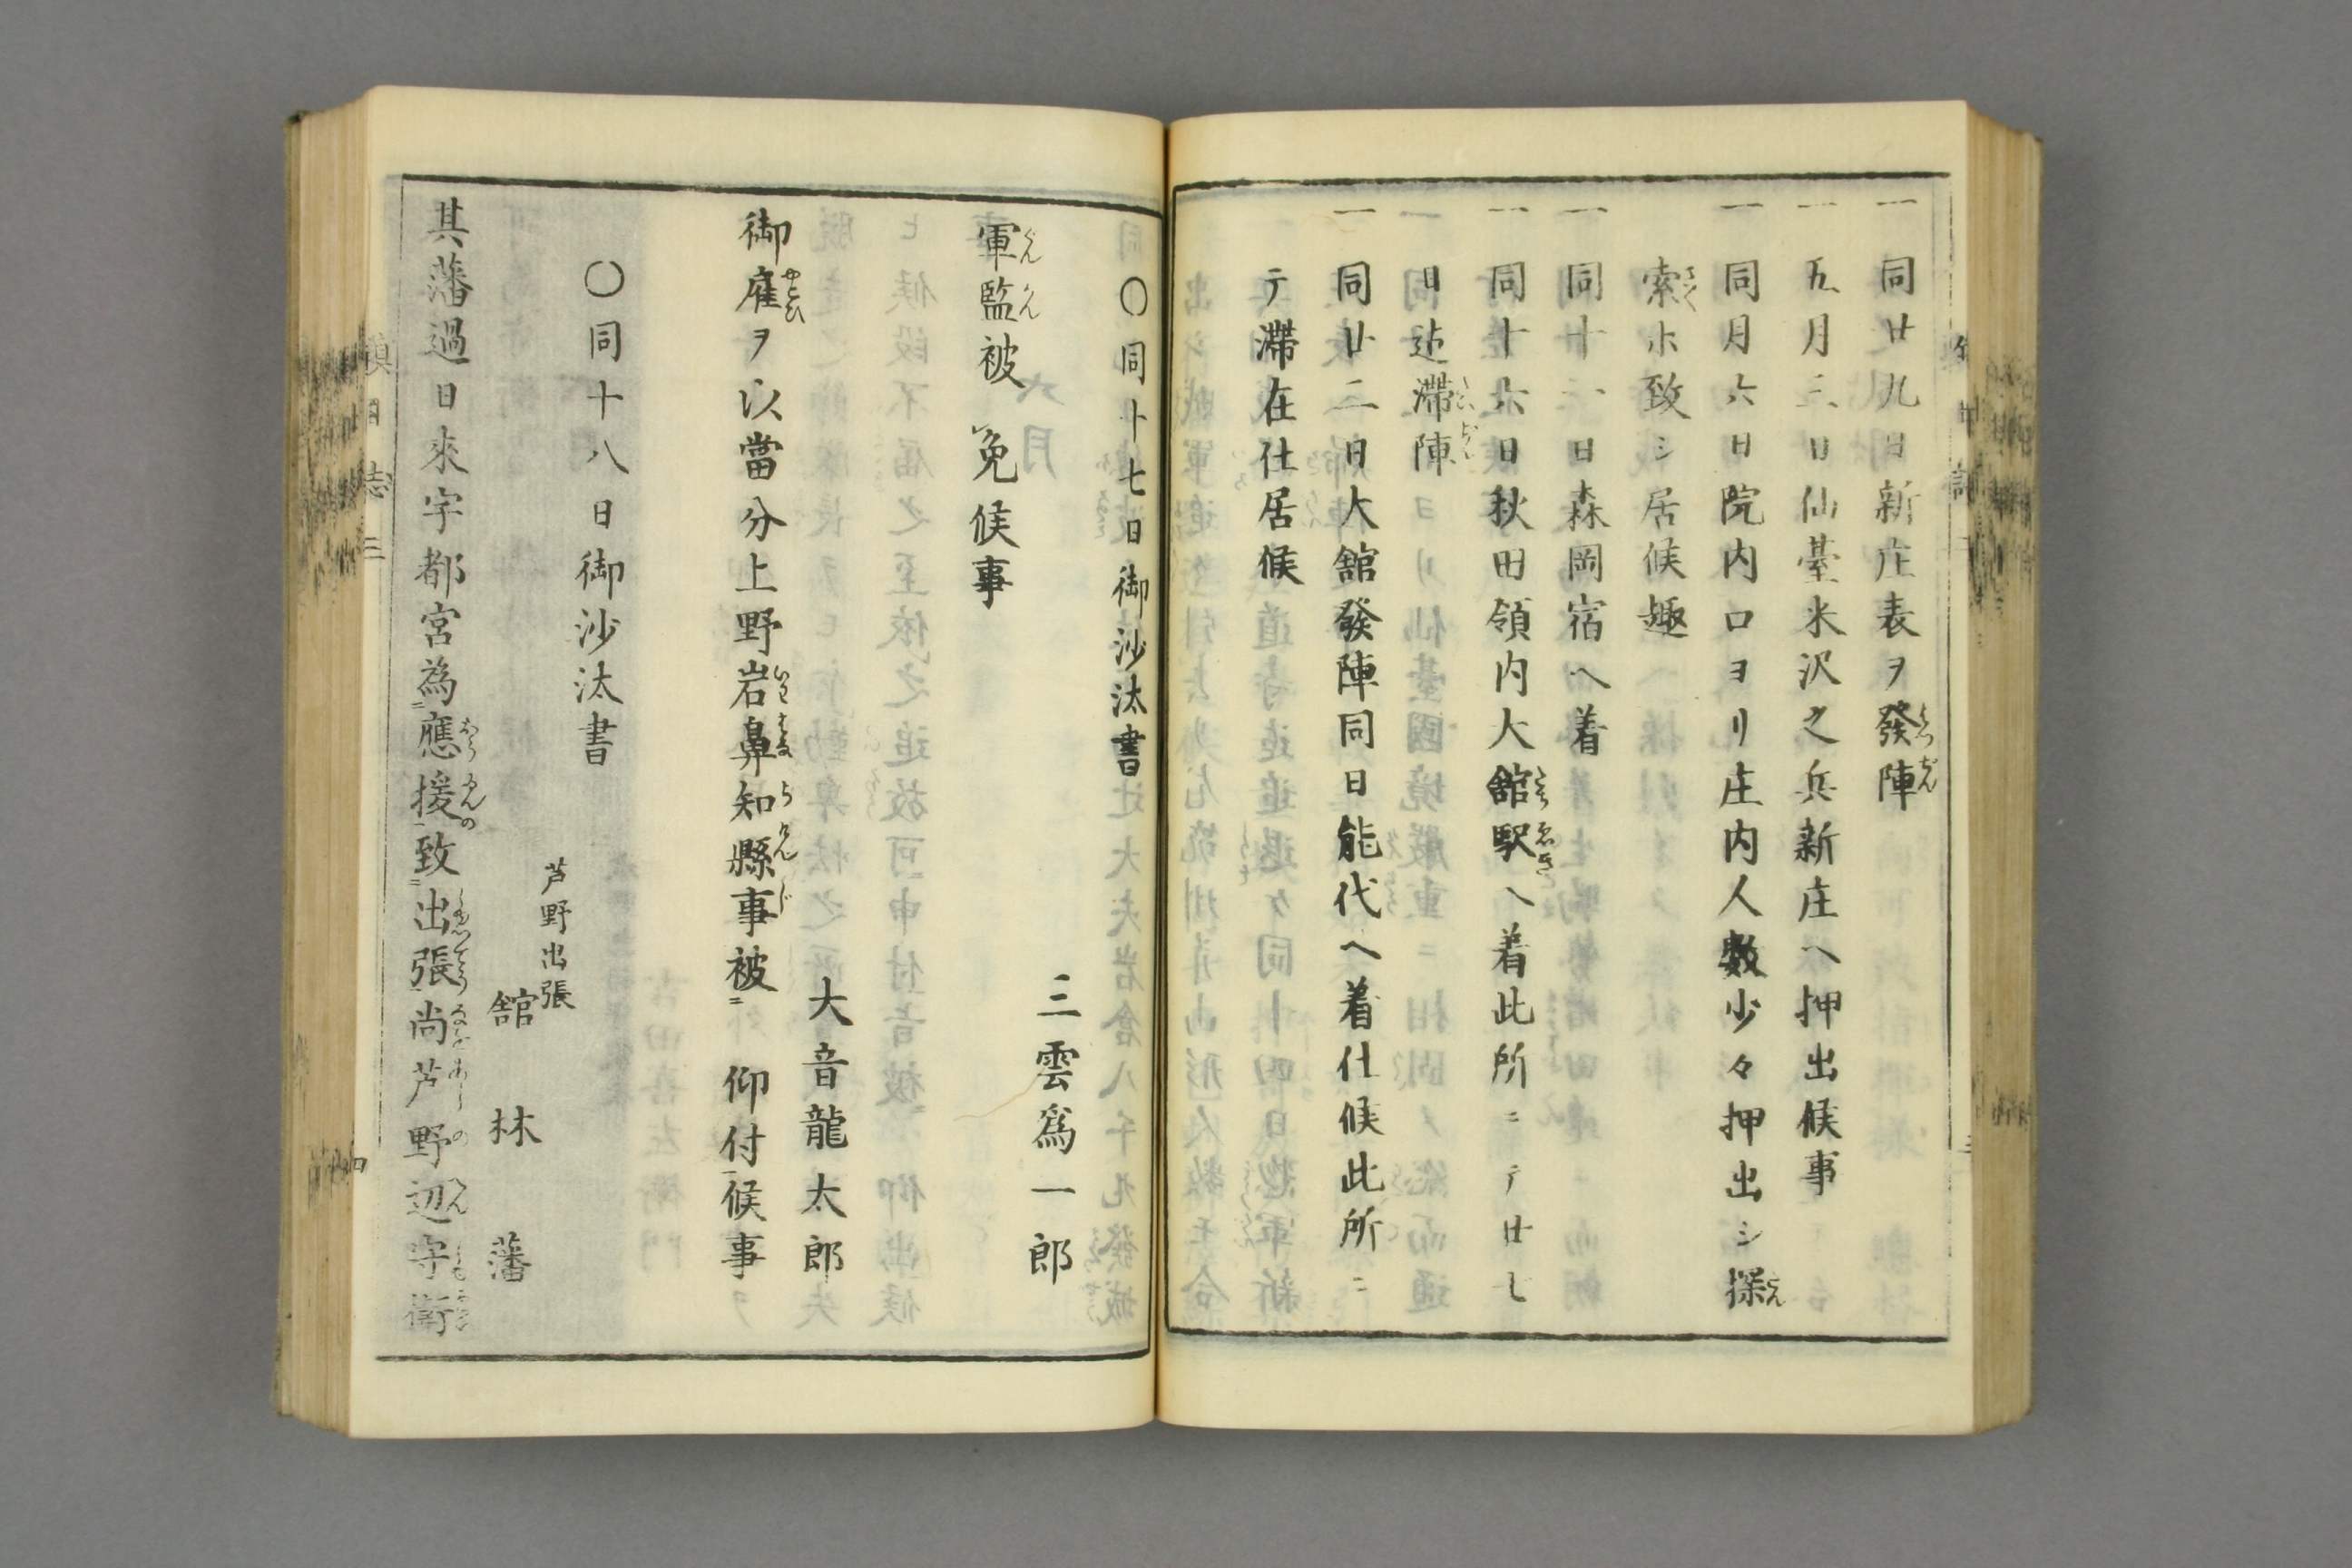 一 同廿九日新庄表ヲ發陣
一 五月三日仙臺米沢之兵新庄ヘ押出候事
一 同月六日院内口ヨリ庄内人數少々押出シ探
索ホ致シ居候趣
一 同十一日森岡宿ヘ着
一 同十六日秋田領内大舘駅ヘ着此所ニテ廿七
日迠滯陣
一 同廿二日大舘發陣同日能代ヘ着仕候此所ニ
テ滯在仕居候
〇同十七日御沙汰書
三雲爲一郎
軍監被 免候事
大音龍太郎
御雇ヲ以當分上野岩鼻知縣事被 仰付候事
〇同十八日御沙汰書
芦野出張
舘林藩
其藩過日來宇都宮為應援致出張尚芦野辺守衛